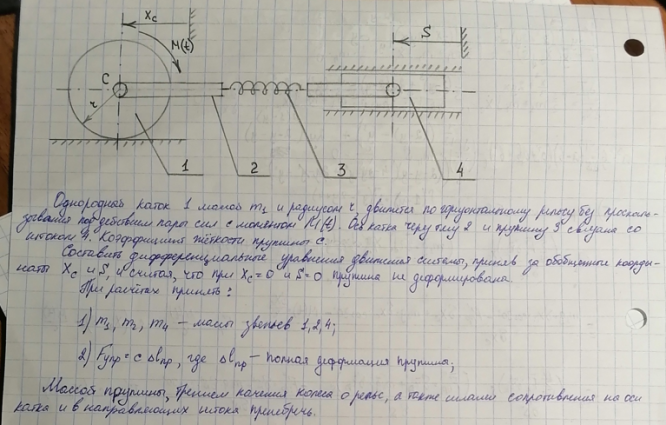 Xc
S
M(t)
C
r
1
2
3
4
Однородный каток 1 массой m₁ и радиусом r движется по горизонтальному рельсу без просколь-
зывания под действием пары сил с моментом M(t). Ось катка через тягу 2 и пружину 3 связана со
штоком 4. Коэффициент жёсткости пружины c.
Составить дифференциальные уравнения движения системы, приняв за обобщенные коорди-
наты Xc и S, и считая, что при Xc=0 и S=0 пружина не деформирована.
При расчётах принять:
1) m₁, m₂, m₄ – массы звеньев 1,2,4;
2) Fупр = c Δlпр, где Δlпр – полная деформация пружины;
Массой пружины, трением качения колеса о рельс, а также силами сопротивления на оси
катка и в направляющих штока пренебречь.